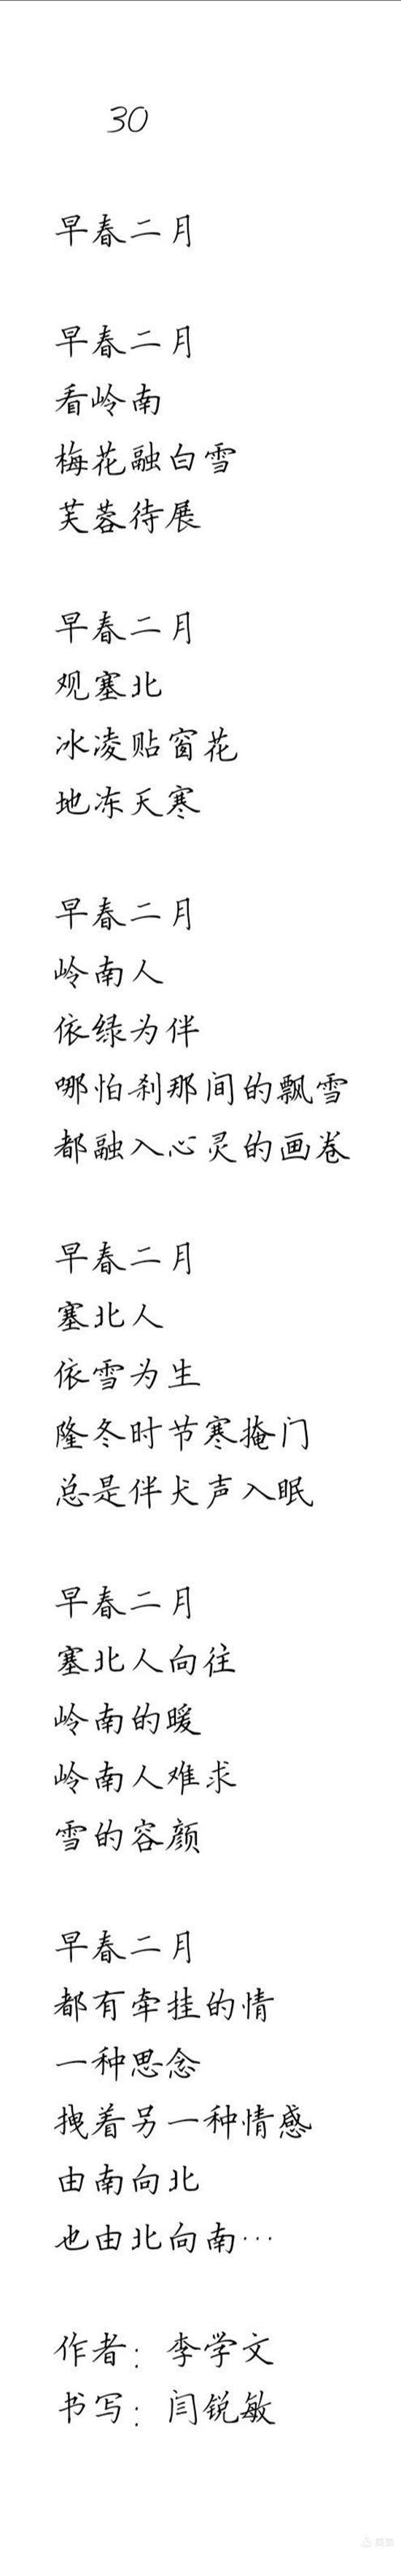 30
早春二月
早春二月
看岭南
梅花融白雪
芙蓉待展
早春二月
观塞北
冰凌贴窗花
地冻天寒
早春二月
岭南人
依绿为伴
哪怕刹那间的飘雪
都融入心灵的画卷
早春二月
塞北人
依雪为生
隆冬时节寒掩门
总是伴犬声入眠
早春二月
塞北人向往
岭南的暖
岭南人难求
雪的容颜
早春二月
都有牵挂的情
一种思念
拽着另一种情感
由南向北
也由北向南…
作者：李学文
书写：闫锐敏
美篇